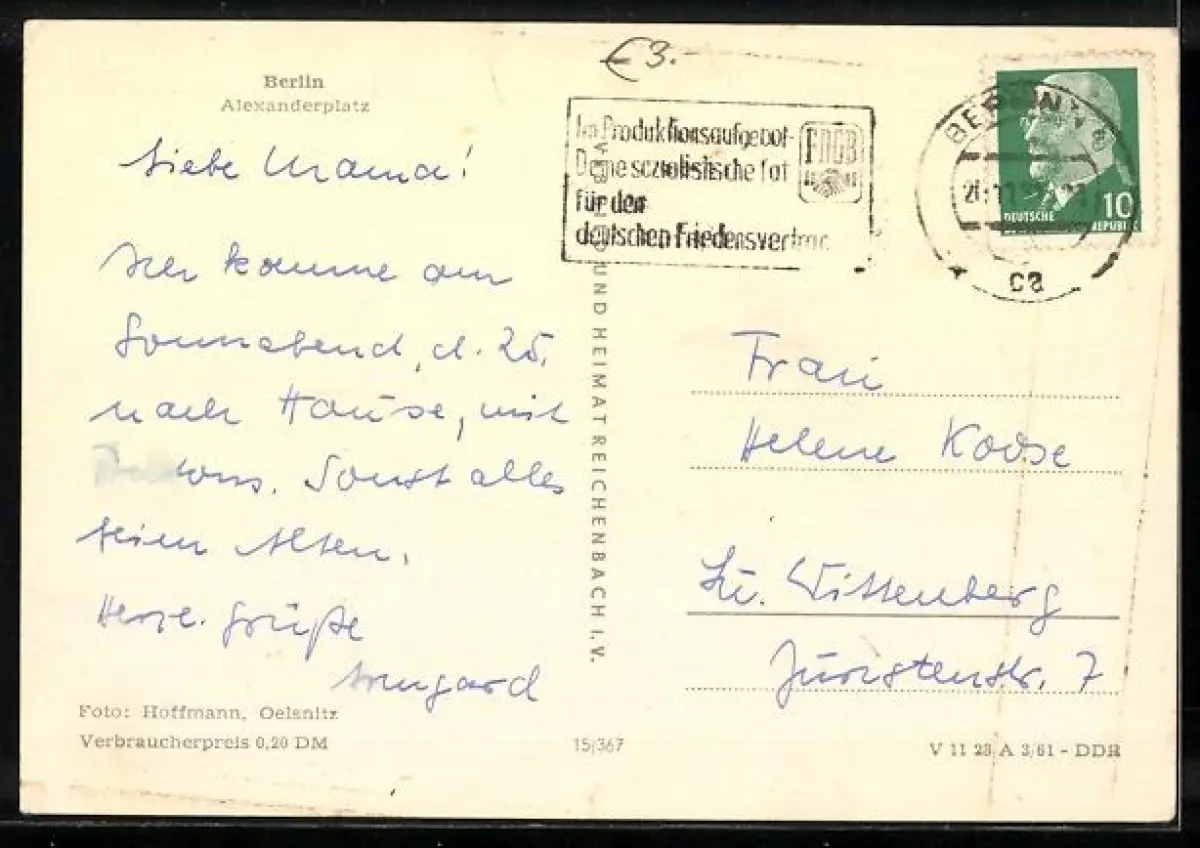 Berlin
Alexanderplatz
€ 3.-
Im Produktionsaufgebot
Deine sozialistische Tat
für den
deutschen Friedensvertrag
FDGB
BERLIN
10
DEUTSCHE
REPUBLIK
Liebe Mama!
komme am
Sonnabend, d. 25.
nach Hause, mit
Sonst alles
beim Alten.
Herzl. Grüße
Irmgard
UND HEIMAT REICHENBACH I. V.
Frau
Helene Koose
Lu. Wittenberg
Juristenstr. 7
Foto: Hoffmann, Oelsnitz
Verbraucherpreis 0,20 DM
15/367
V 11 28 A 3/61 - DDR